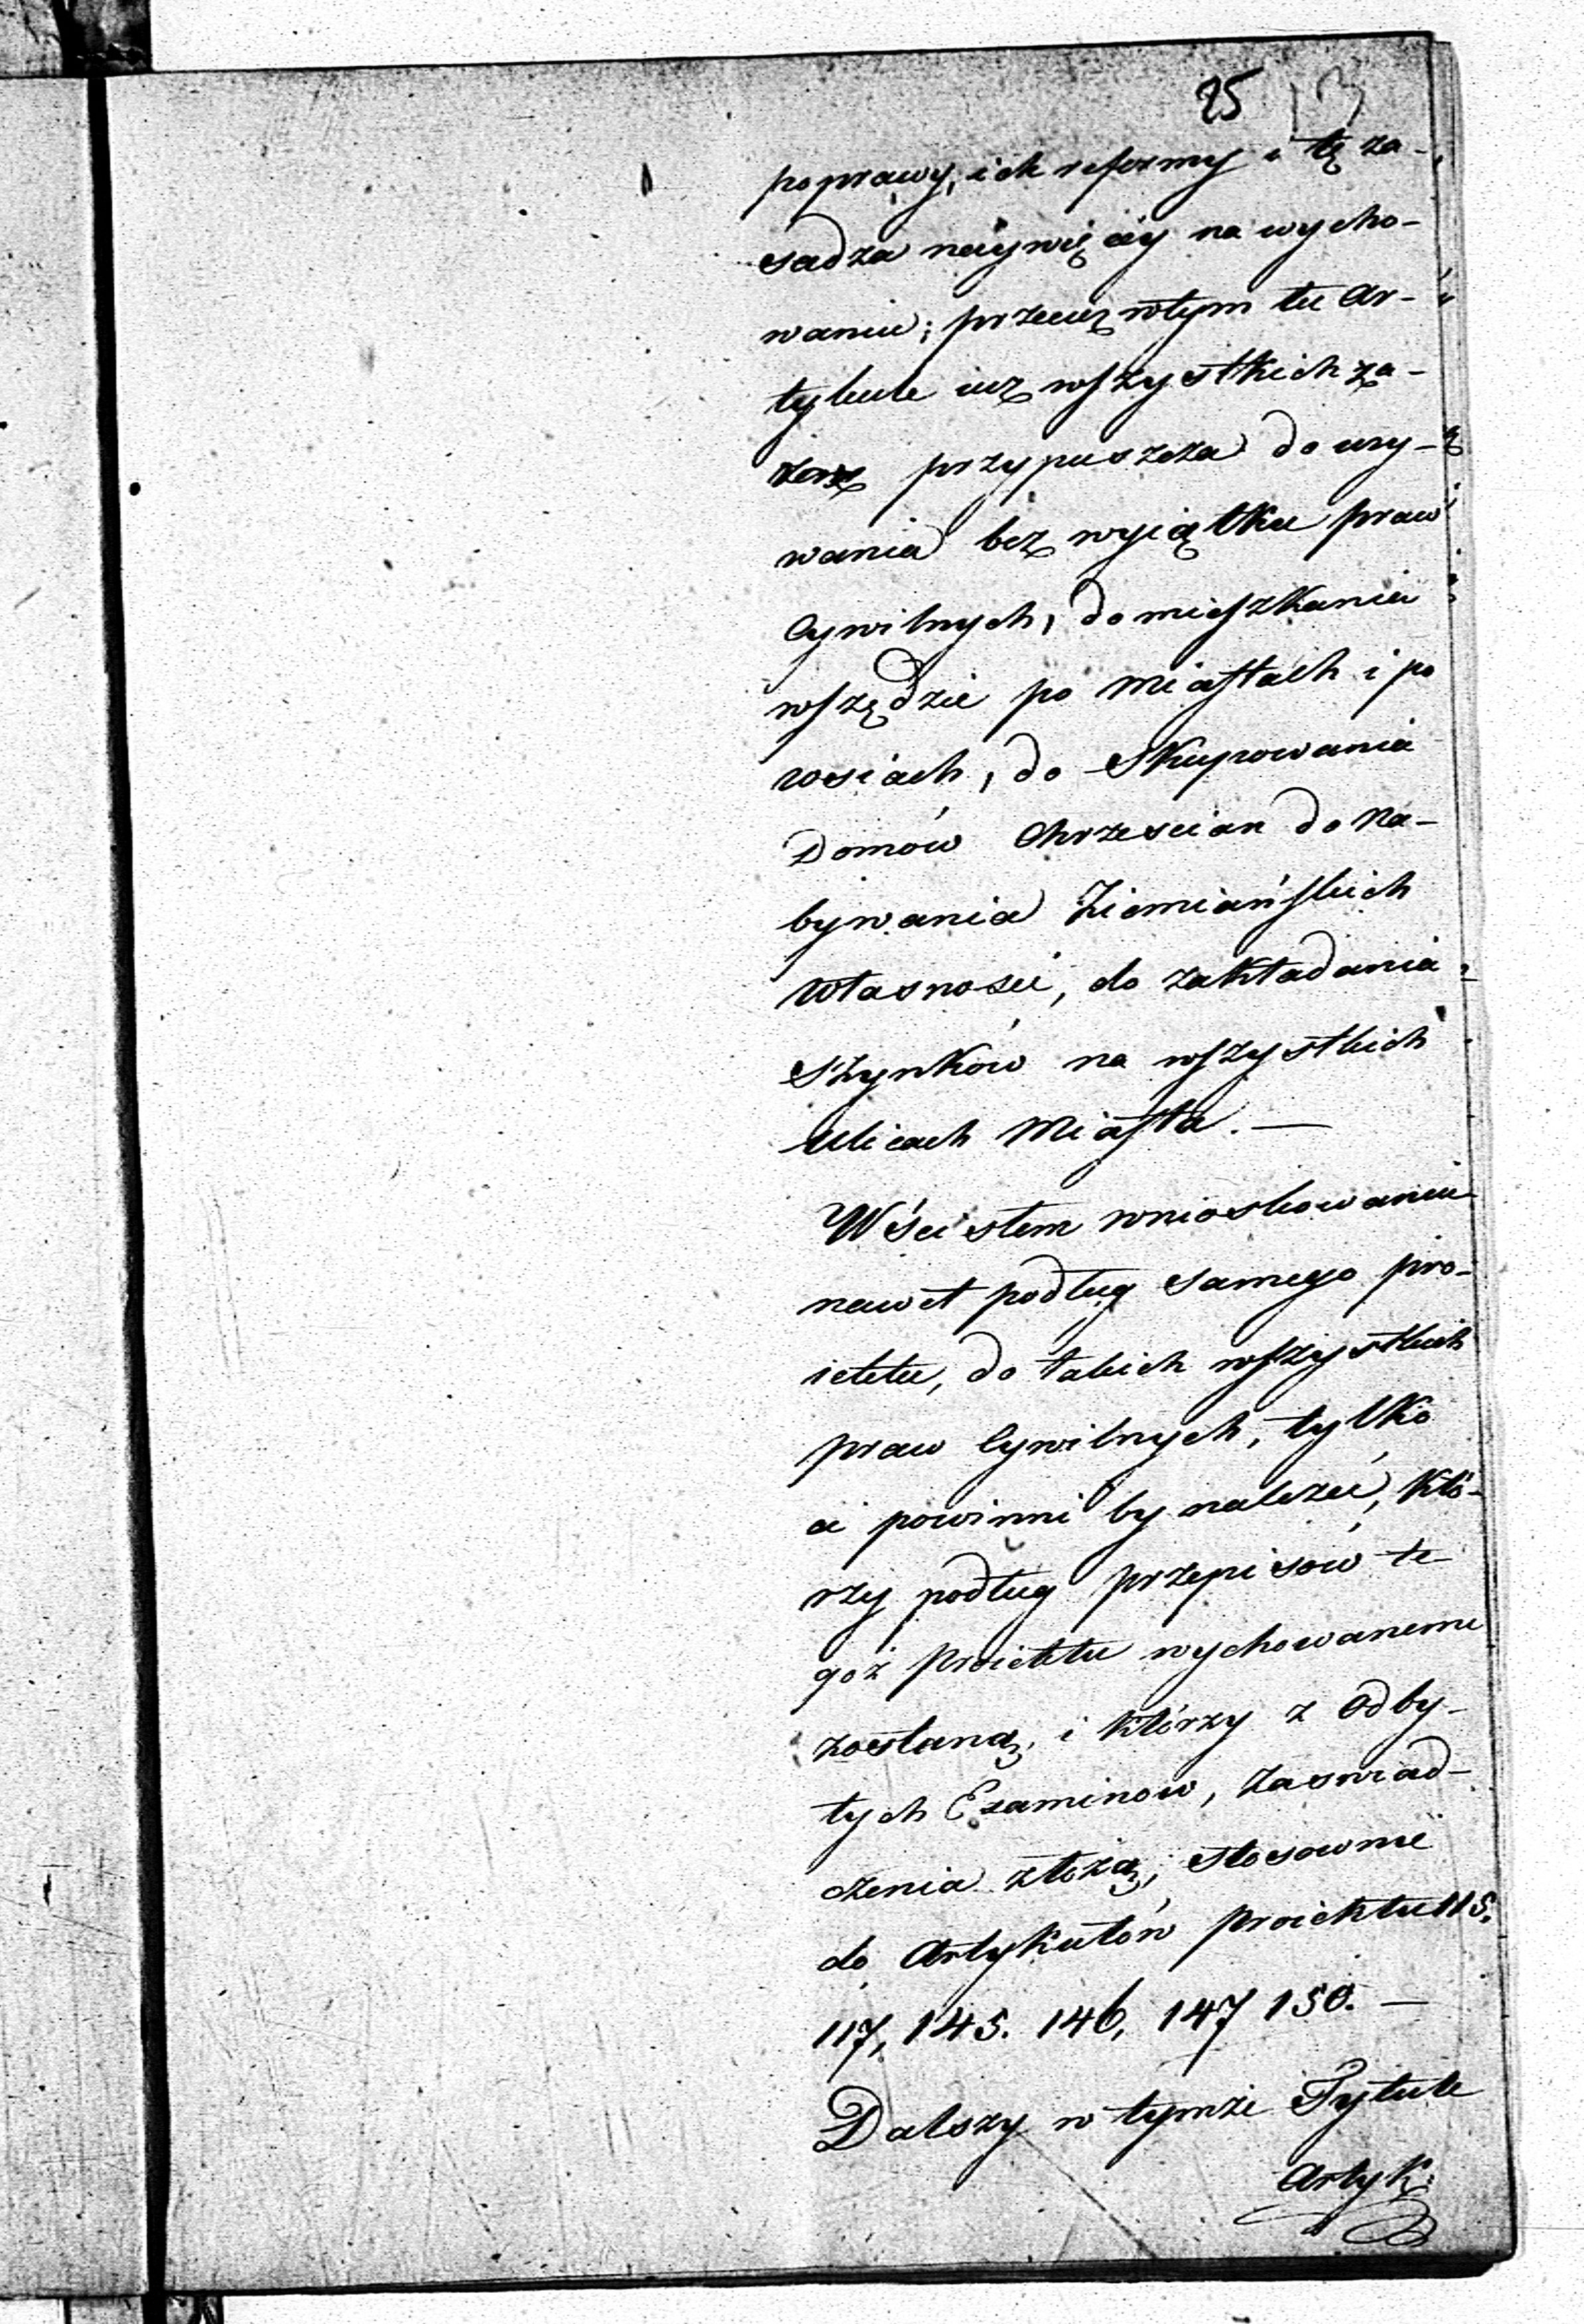 25 13
poprawy, ich reformy i tę za-
sadza naywięcy na wycho-
waniu; przecież wtym tu Ar-
tykule iuż wszystkich za-
raz przypuszcza do uży-
wania bez wyiątku praw
Cywilnych, do mieszkania
wszędzie po Miastach i po
wsiach, do skupowania
Domów Chrzescian do na-
bywania Ziemiańskich
własnosci, do zakładania
szynków na wszystkich
ulicach Miasta. —
W ścisłem wnioskowaniu
nawet podług samego pro-
iektu, do takich wszystkich
praw Cywilnych, tylko
ci powinni by nalezeć, któ-
rzy podług przepisów te-
goż Proiektu wychowanemi
zostaną, i którzy z odby-
tych Examinow, zaswiad-
czenia złożą, stosownie
do Artykułów Proiektu 115.
117, 145. 146, 147 150. —
Dalszy w tymże Tytule
Artyk: